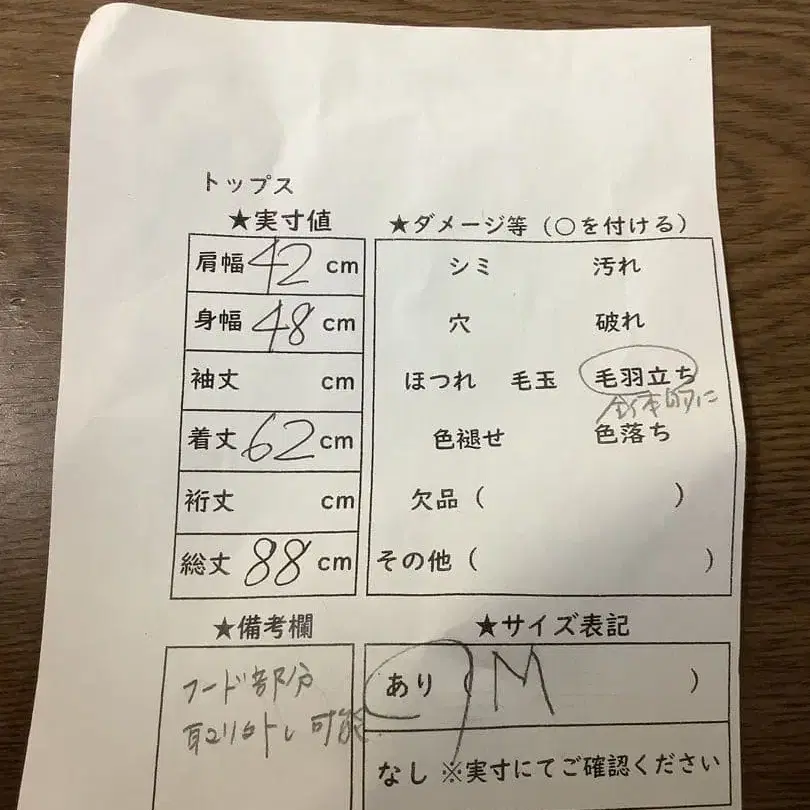 トップス
★実寸値
肩幅 42 cm
身幅 48 cm
袖丈 cm
着丈 62 cm
裄丈 cm
総丈 88 cm
★ダメージ等（○を付ける）
シミ 汚れ
穴 破れ
ほつれ 毛玉 毛羽立ち
全体的に
色褪せ 色落ち
欠品（ ）
その他（ ）
★備考欄
フード部分
取り外し可能
★サイズ表記
あり（M ）
なし ※実寸にてご確認ください